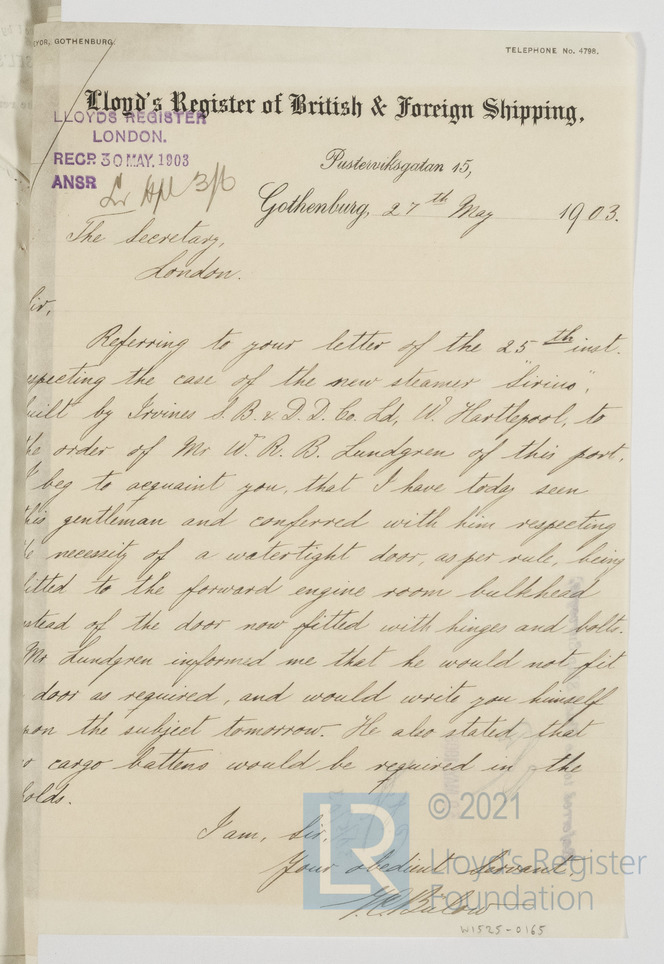 YOR, GOTHENBURG.
TELEPHONE No. 4798.
Lloyd's Register of British & Foreign Shipping,
LLOYDS REGISTER
LONDON.
RECD. 30 MAY. 1903
ANSR
3/6
Pusterviksgatan 15,
Gothenburg, 27th May 1903.
The Secretary,
London.
Sir,
Referring to your letter of the 25th inst.
specting the case of the new steamer "Sirius",
uilt by Irvines S. B. & D. D. Co. Ld, W. Hartlepool, to
he order of Mr W. R. B. Lundgren of this port,
I beg to acquaint you, that I have today seen
his gentleman and conferred with him respecting
he necessity of a watertight door, as per rule, being
itted to the forward engine room bulkhead
nstead of the door now fitted with hinges and bolts.
Mr Lundgren informed me that he would not fit
door as required, and would write you himself
pon the subject tomorrow. He also stated that
o cargo battens would be required in the
holds.
I am, Sir,
Your obedient Servant
LR
© 2021
Lloyd's Register
Foundation
W1525-0165